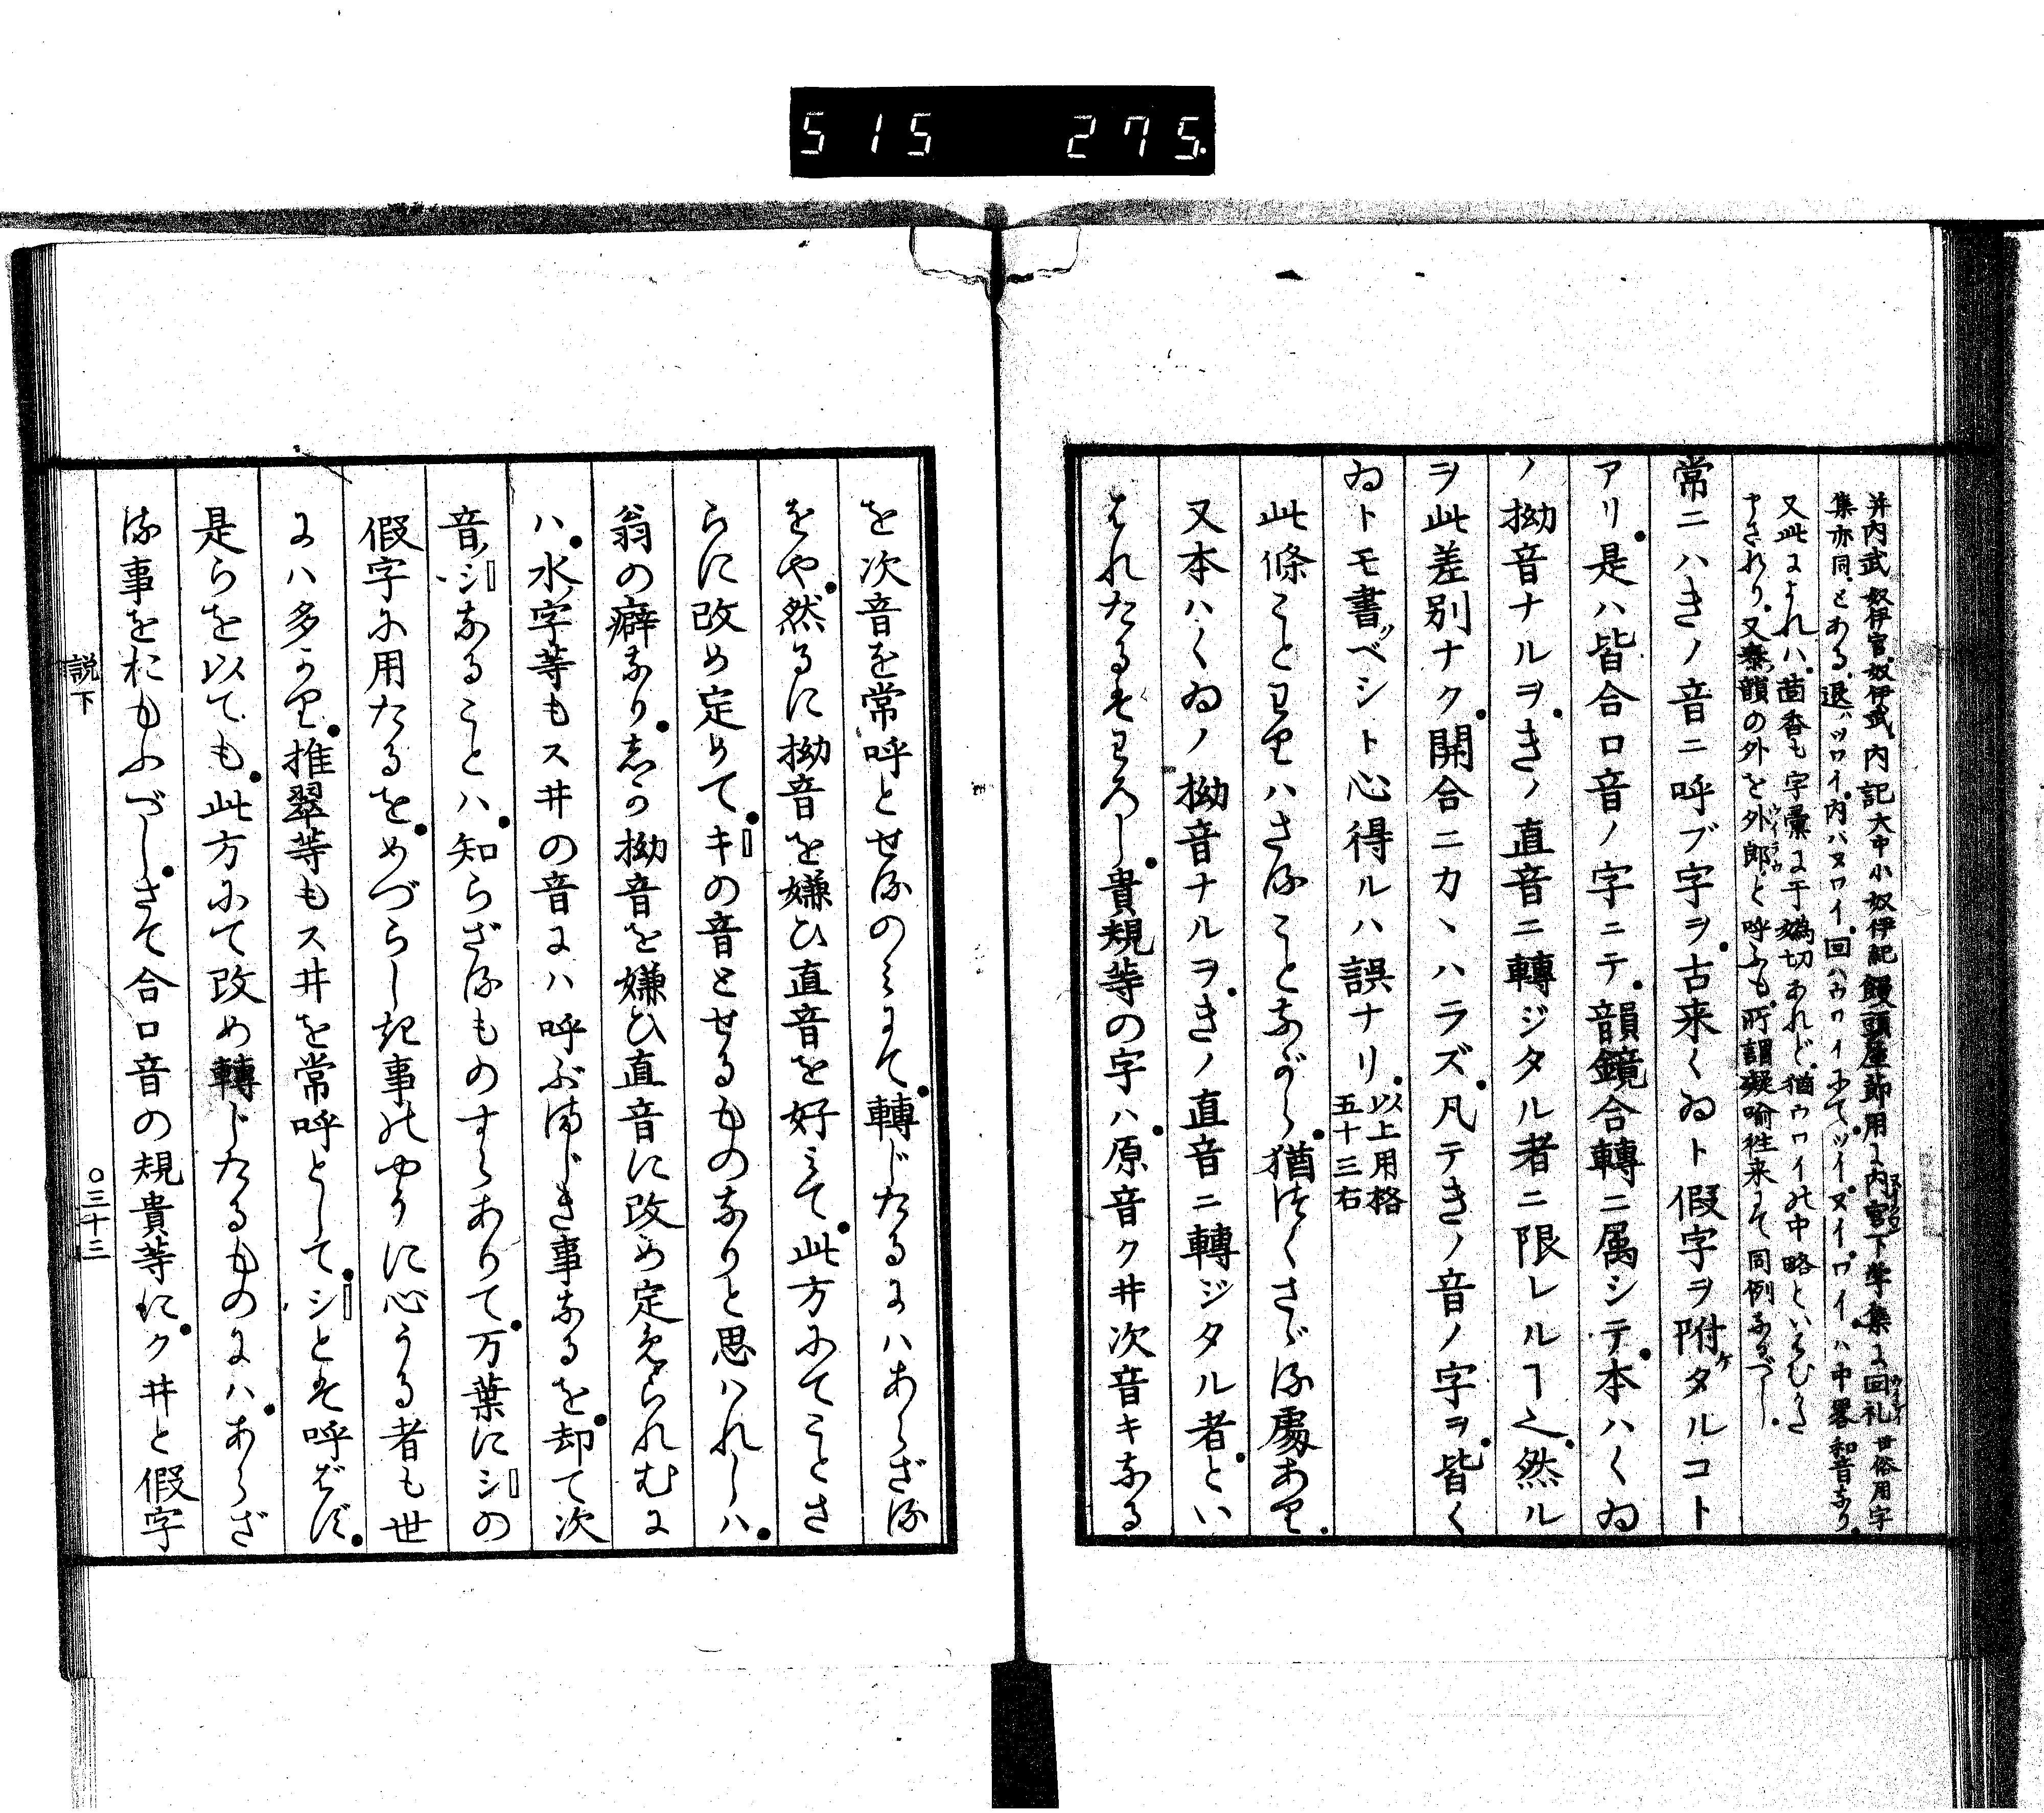 515 275.
并内武奴伊官奴伊武内記大中小奴伊紀饅頭屋節用に内宮下学集に回礼世俗用字
集亦同とある退ハツワイ内ハヌワイ回ハウワイにてツイヌイワイハ中畧和音なり
又此によれハ茴香も字彙に于嬀切あれど猶ウワイの中略といはむかた
まされり又泰韻の外を外郎と呼ふも所謂礙喩徃来にて同例なるべし
常ニハきノ音ニ呼ブ字ヲ古来くゐト假字ヲ附ケタルコト
アリ是ハ皆合口音ノ字ニテ韻鏡合轉ニ属シテ本ハくゐ
ノ拗音ナルヲきノ直音ニ轉ジタル者ニ限レルヿ也然ル
ヲ此差別ナク開合ニカヽハラズ凡テきノ音ノ字ヲ皆く
ゐトモ書クベシト心得ルハ誤ナリ以上用格五十三右
此條ことわりハさることながら猶つくさゞる處あり
又本ハくゐノ拗音ナルヲきノ直音ニ轉ジタル者とい
はれたるはわろし貴規等の字ハ原音クヰ次音キなる
を次音を常呼とせるのみにて轉じたるにハあらざる
をや然るに拗音を嫌ひ直音を好みて此方にてことさ
らに改め定めてキの音とせるものなりと思ハれしハ
翁の癖なりしか拗音を嫌ひ直音に改め定めらられむに
ハ水字等もスヰの音にハ呼ぶまじき事なるを却て次
音シなることハ知らざるものすらありて万葉にシの
假字に用たるをめづらしき事のやうに心うる者も世
にハ多かり推翠等もスヰを常呼としてシとは呼ばず
是らを以ても此方にて改め轉じたるものにハあらざ
る事をおもふべしさて合口音の規貴等にクヰと假字
説下
〇三十三